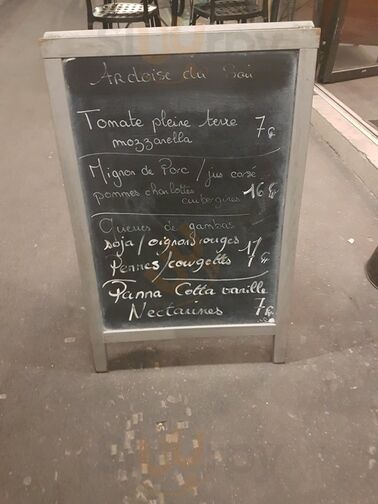 Ardoise du Bai
Tomate pleine terre 7€
mozzarella
Mignon de Porc / jus corsé
pommes charlottes 16€
aubergines
Queues de gambas
soja/oignons rouges 17€
Pennes/courgettes
Panna Cotta vanille
Nectarines 7€